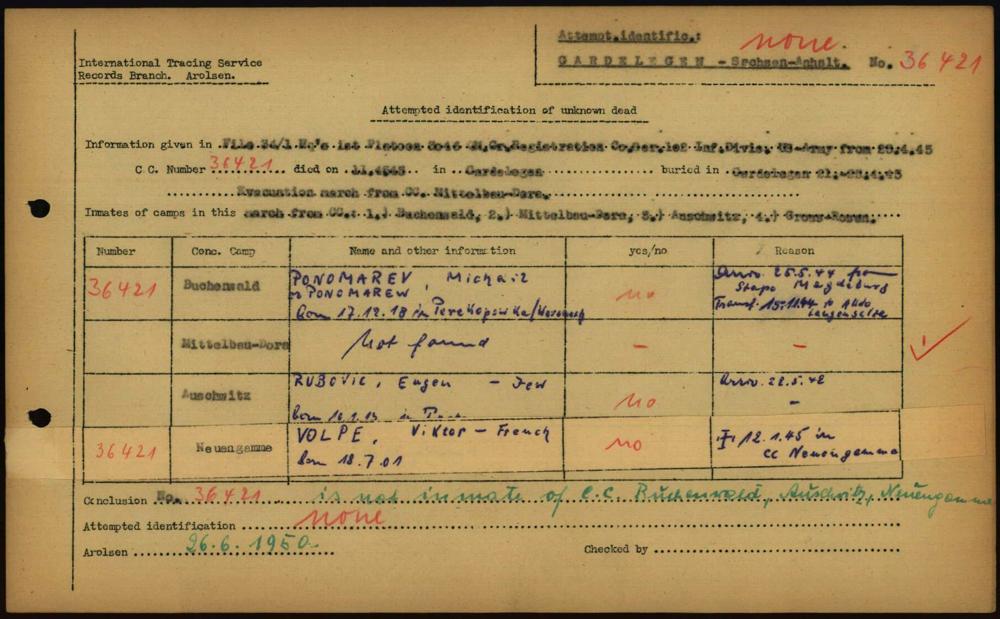 International Tracing Service
Records Branch. Arolsen.
Attempt.identific.: none
GARDELEGEN - Sachsen-Anhalt. No. 36421
Attempted identification of unknown dead
Information given in File 34/1 Hq's 1st Platoon 3046 Gr.Registration Co, Inf.Divis. US-Army from 29.4.45
C.C. Number 36421 died on 11.4.945 in Gardelegen buried in Gardelegen 21.-23.4.45
Evacuation march from CC. Mittelbau-Dora.
Inmates of camps in this march from CC.: 1.) Buchenwald, 2.) Mittelbau-Dora, 3.) Auschwitz, 4.) Gross-Rosen.
Number Conc. Camp Name and other information yes/no Reason
36421 Buchenwald PONOMAREV, Michail no Arriv. 25.5.44 from
or PONOMAREW Stapo Magdeburg
born 17.12.18 in Perekopowka/ Transf. 15.11.44 to Kdo
Langensalza
Mittelbau-Dora Not found - -
Auschwitz RUBOVIC, Eugen - Jew no Arriv. 22.5.42
born in -
36421 Neuengamme VOLPE, Viktor - French no 12.1.45 in
born 18.7.01 CC Neuengamme
Conclusion No. 36421 is not inmate of C.C. Buchenwald, Auschwitz, Neuengamme
Attempted identification none
Arolsen 26.6.1950 Checked by